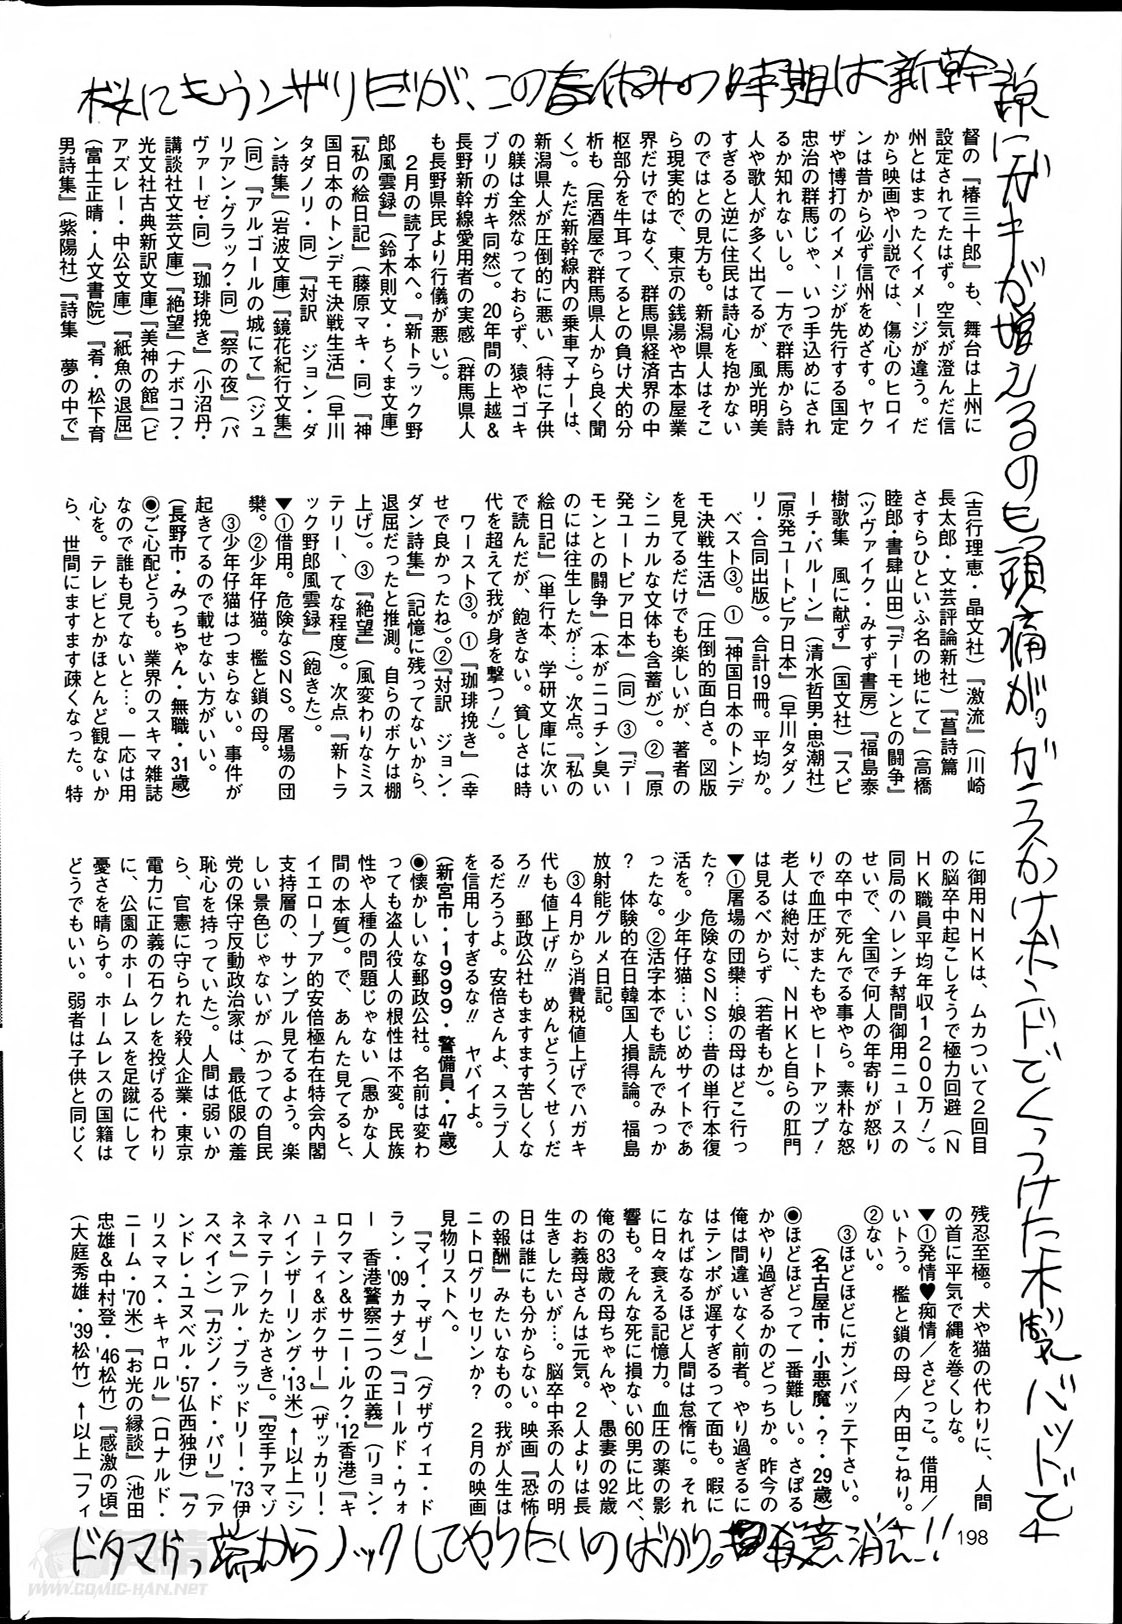 桜にもうンザリだが、この春休みの時期は新幹線にガキが増えるのも頭痛が。ガラスかけボンドでくっつけた木製バットで
ドタマかっ端からノックしてやりたいのばかり。殺意消さん!!
督の『椿三十郎』も、舞台は上州に
設定されてたはず。空気が澄んだ信
州とはまったくイメージが違う。だ
から映画や小説では、傷心のヒロイ
ンは昔から必ず信州をめざす。ヤク
ザや博打のイメージが先行する国定
忠治の群馬じゃ、いつ手込めにされ
るか知れないし。一方で群馬から詩
人や歌人が多く出てるが、風光明美
すぎると逆に住民は詩心を抱かない
のではとの見方も。新潟県人はそこ
ら現実的で、東京の銭湯や古本屋業
界だけではなく、群馬県経済界の中
枢部分を牛耳ってるとの負け犬的分
析も（居酒屋で群馬県人から良く聞
く）。ただ新幹線内の乗車マナーは、
新潟県人が圧倒的に悪い（特に子供
の躾は全然なっておらず、猿やゴキ
ブリのガキ同然）。20年間の上越＆
長野新幹線愛用者の実感（群馬県人
も長野県民より行儀が悪い）。
２月の読了本へ。『新トラック野
郎風雲録』（鈴木則文・ちくま文庫）
『私の絵日記』（藤原マキ・同）『神
国日本のトンデモ決戦生活』（早川
タダノリ・同）『対訳　ジョン・ダ
ン詩集』（岩波文庫）『鏡花紀行文集』
（同）『アルゴールの城にて』（ジュ
リアン・グラック・同）『祭の夜』（パ
ヴァーゼ・同）『珈琲挽き』（小沼丹・
講談社文芸文庫）『絶望』（ナボコフ・
光文社古典新訳文庫）『美神の館』（ビ
アズレー・中公文庫）『紙魚の退屈』
（富士正晴・人文書院）『肴・松下育
男詩集』（紫陽社）『詩集　夢の中で』
（吉行理恵・晶文社）『激流』（川崎
長太郎・文芸評論新社）『菖詩篇
さすらひといふ名の地にて』（高橋
睦郎・書肆山田）『デーモンとの闘争』
（ツヴァイク・みすず書房）『福島泰
樹歌集　風に献ず』（国文社）『スピ
ーチ・バルーン』（清水哲男・思潮社）
『原発ユートピア日本』（早川タダノ
リ・合同出版）。合計19冊。平均か。
ベスト③。①『神国日本のトンデ
モ決戦生活』（圧倒的面白さ。図版
を見てるだけでも楽しいが、著者の
シニカルな文体も含蓄が）。②『原
発ユートピア日本』（同）③『デー
モンとの闘争』（本がニコチン臭い
のには往生したが…）。次点。『私の
絵日記』（単行本、学研文庫に次い
で読んだが、飽きない。貧しさは時
代を超えて我が身を撃つ！）。
ワースト③。①『珈琲挽き』（幸
せで良かったね）。②『対訳　ジョン・
ダン詩集』（記憶に残ってないから、
退屈だったと推測。自らのボケは棚
上げ）。③『絶望』（風変わりなミス
テリー、てな程度）。次点『新トラ
ック野郎風雲録』（飽きた）。
▼①借用。危険なＳＮＳ。屠場の団
欒。②少年仔猫。檻と鎖の母。
③少年仔猫はつまらない。事件が
起きてるので載せない方がいい。
（長野市・みっちゃん・無職・31歳）
◉ご心配どうも。業界のスキマ雑誌
なので誰も見てないと…。一応は用
心を。テレビとかほとんど観ないか
ら、世間にますます疎くなった。特
に御用ＮＨＫは、ムカついて２回目
の脳卒中起こしそうで極力回避（Ｎ
ＨＫ職員平均年収１２００万！）。
同局のハレンチ幇間御用ニュースの
せいで、全国で何人の年寄りが怒り
の卒中で死んでる事やら。素朴な怒
りで血圧がまたもやヒートアップ！
老人は絶対に、ＮＨＫと自らの肛門
は見るべからず（若者もか）。
▼①屠場の団欒…娘の母はどこ行っ
た？　危険なＳＮＳ…昔の単行本復
活を。少年仔猫…いじめサイトであ
ったな。②活字本でも読んでみっか
？　体験的在日韓国人損得論。福島
放射能グルメ日記。
③４月から消費税値上げでハガキ
代も値上げ!!　めんどうくせ〜だ
ろ!!　郵政公社もますます苦しくな
るだろうよ。安倍さんよ、スラブ人
を信用しすぎるな!!　ヤバイよ。
（新宮市・1999・警備員・47歳）
◉懐かしいな郵政公社。名前は変わ
っても盗人役人の根性は不変。民族
性や人種の問題じゃない（愚かな人
間の本質）。で、あんた見てると、
イエロープア的安倍極右在特会内閣
支持層の、サンプル見てるよう。楽
しい景色じゃないが（かつての自民
党の保守反動政治家は、最低限の羞
恥心を持っていた）。人間は弱いか
ら、官憲に守られた殺人企業・東京
電力に正義の石クレを投げる代わり
に、公園のホームレスを足蹴にして
憂さを晴らす。ホームレスの国籍は
どうでもいい。弱者は子供と同じく
残忍至極。犬や猫の代わりに、人間
の首に平気で縄を巻くしな。
▼①発情♥痴情／さどっこ。借用／
いトう。檻と鎖の母／内田こねり。
②ない。
③ほどほどにガンバッテ下さい。
（名古屋市・小悪魔・？・29歳）
◉ほどほどって一番難しい。さぼる
かやり過ぎるかのどっちか。昨今の
俺は間違いなく前者。やり過ぎるに
はテンポが遅すぎるって面も。暇に
なればなるほど人間は怠惰に。それ
に日々衰える記憶力。血圧の薬の影
響も。そんな死に損ない60男に比べ、
俺の83歳の母ちゃんや、愚妻の92歳
のお義母さんは元気。２人よりは長
生きしたいが…。脳卒中系の人の明
日は誰にも分からない。映画『恐怖
の報酬』みたいなもの。我が人生は
ニトログリセリンか？　２月の映画
見物リストへ。
『マイ・マザー』（グザヴィエ・ド
ラン・'09カナダ）『コールド・ウォ
ー　香港警察二つの正義』（リョン・
ロクマン＆サニー・ルク・'12香港）『キ
ューティ＆ボクサー』（ザッカリー・
ハインザーリング・'13米）↑以上「シ
ネマテークたかさき」。『空手アマゾ
ネス』（アル・ブラッドリー・'73伊
スペイン）『カジノ・ド・パリ』（ア
ンドレ・ユヌベル・'57仏西独伊）『ク
リスマス・キャロル』（ロナルド・
ニーム・'70米）『お光の縁談』（池田
忠雄＆中村登・'46松竹）『感激の頃』
（大庭秀雄・'39松竹）↑以上「フィ
198
WWW.COMIC-HAN.NET